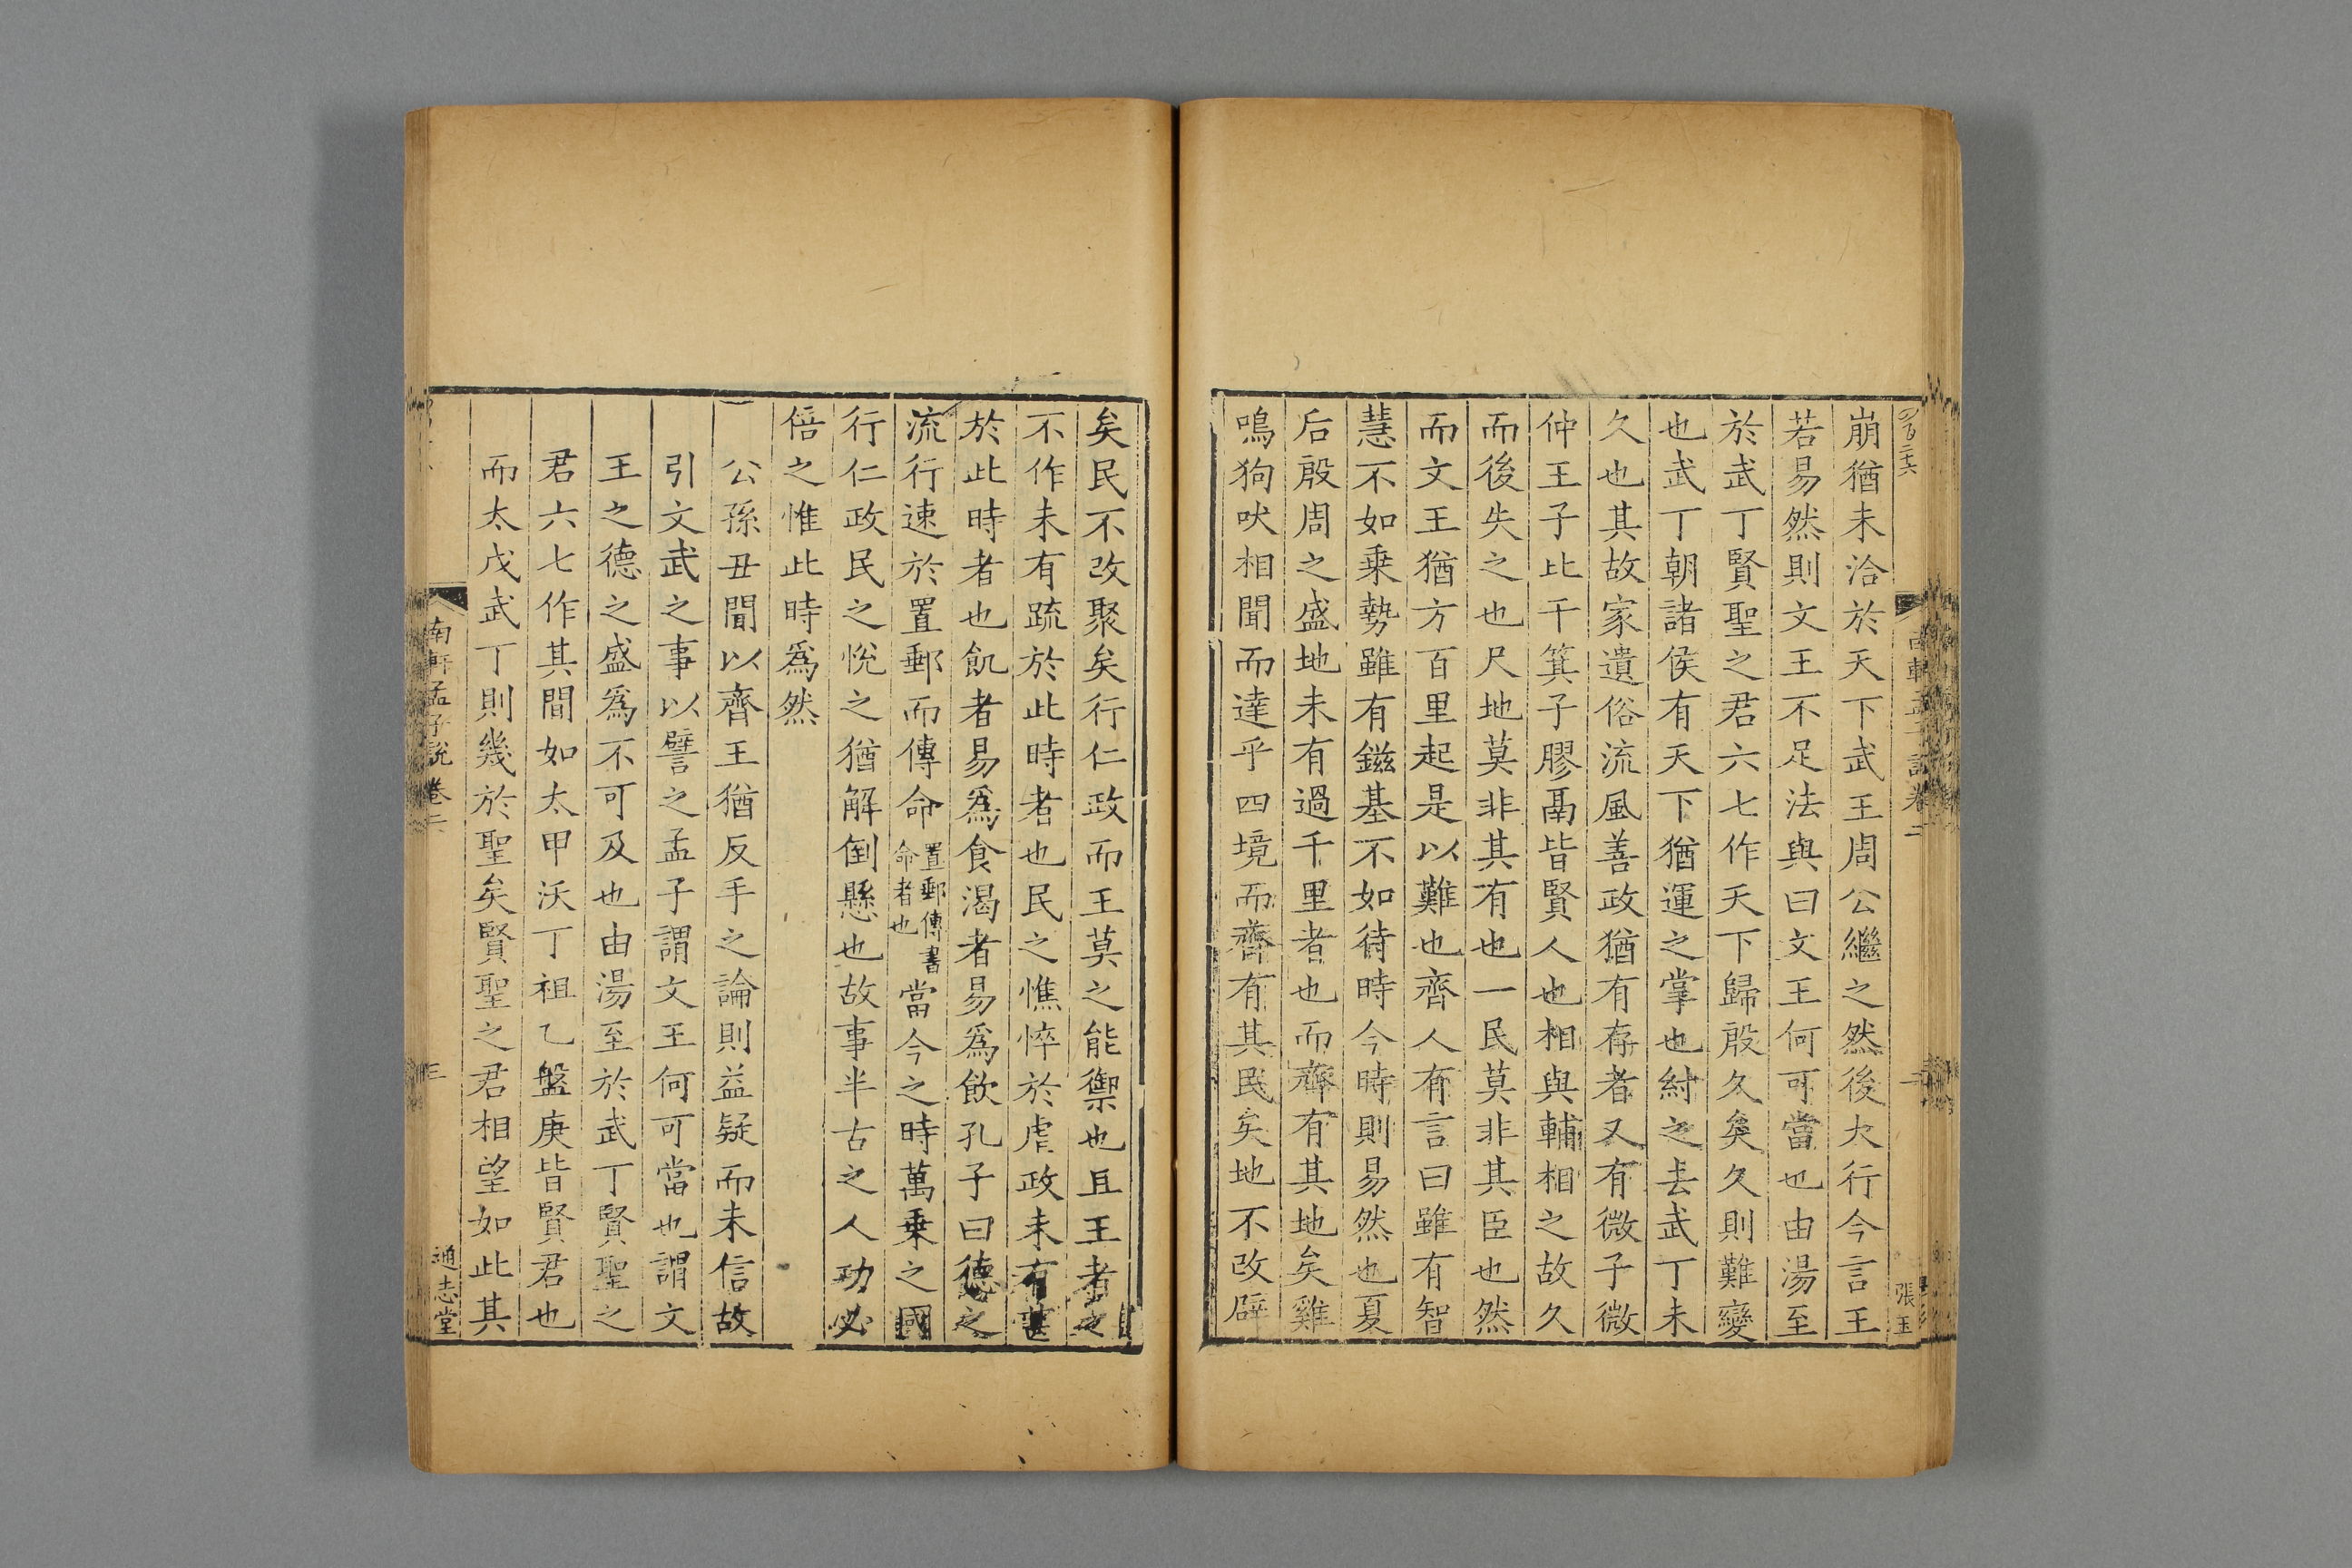 崩猶未洽於天下武王周公繼之然後大行今言王
若易然則文王不足法與曰文王何可當也由湯至
於武丁賢聖之君六七作天下歸殷久矣久則難變
也武丁朝諸侯有天下猶運之掌也紂之去武丁未
久也其故家遺俗流風善政猶有存者又有微子微
仲王子比干箕子膠鬲皆賢人也相與輔相之故久
而後失之也尺地莫非其有也一民莫非其臣也然
而文王猶方百里起是以難也齊人有言曰雖有智
慧不如乗勢雖有鎡基不如待時今時則易然也夏
后殷周之盛地未有過千里者也而齊有其地矣雞
鳴狗吠相聞而達乎四境而齊有其民矣地不改辟
張玉
矣民不改聚矣行仁政而王莫之能禦也且王者之
不作未有疏於此時者也民之憔悴於虐政未有甚
於此時者也飢者易爲食渴者易爲飲孔子曰德之
流行速於置郵而傳命置郵傳書命者也當今之時萬乗之國
行仁政民之悅之猶解倒懸也故事半古之人功必
倍之惟此時爲然
公孫丑聞以齊王猶反手之論則益疑而未信故
引文武之事以譬之孟子謂文王何可當也謂文
王之德之盛爲不可及也由湯至於武丁賢聖之
君六七作其間如太甲沃丁祖乙盤庚皆賢君也
而太戊武丁則幾於聖矣賢聖之君相望如此其
南軒孟子說卷二
三
通志堂